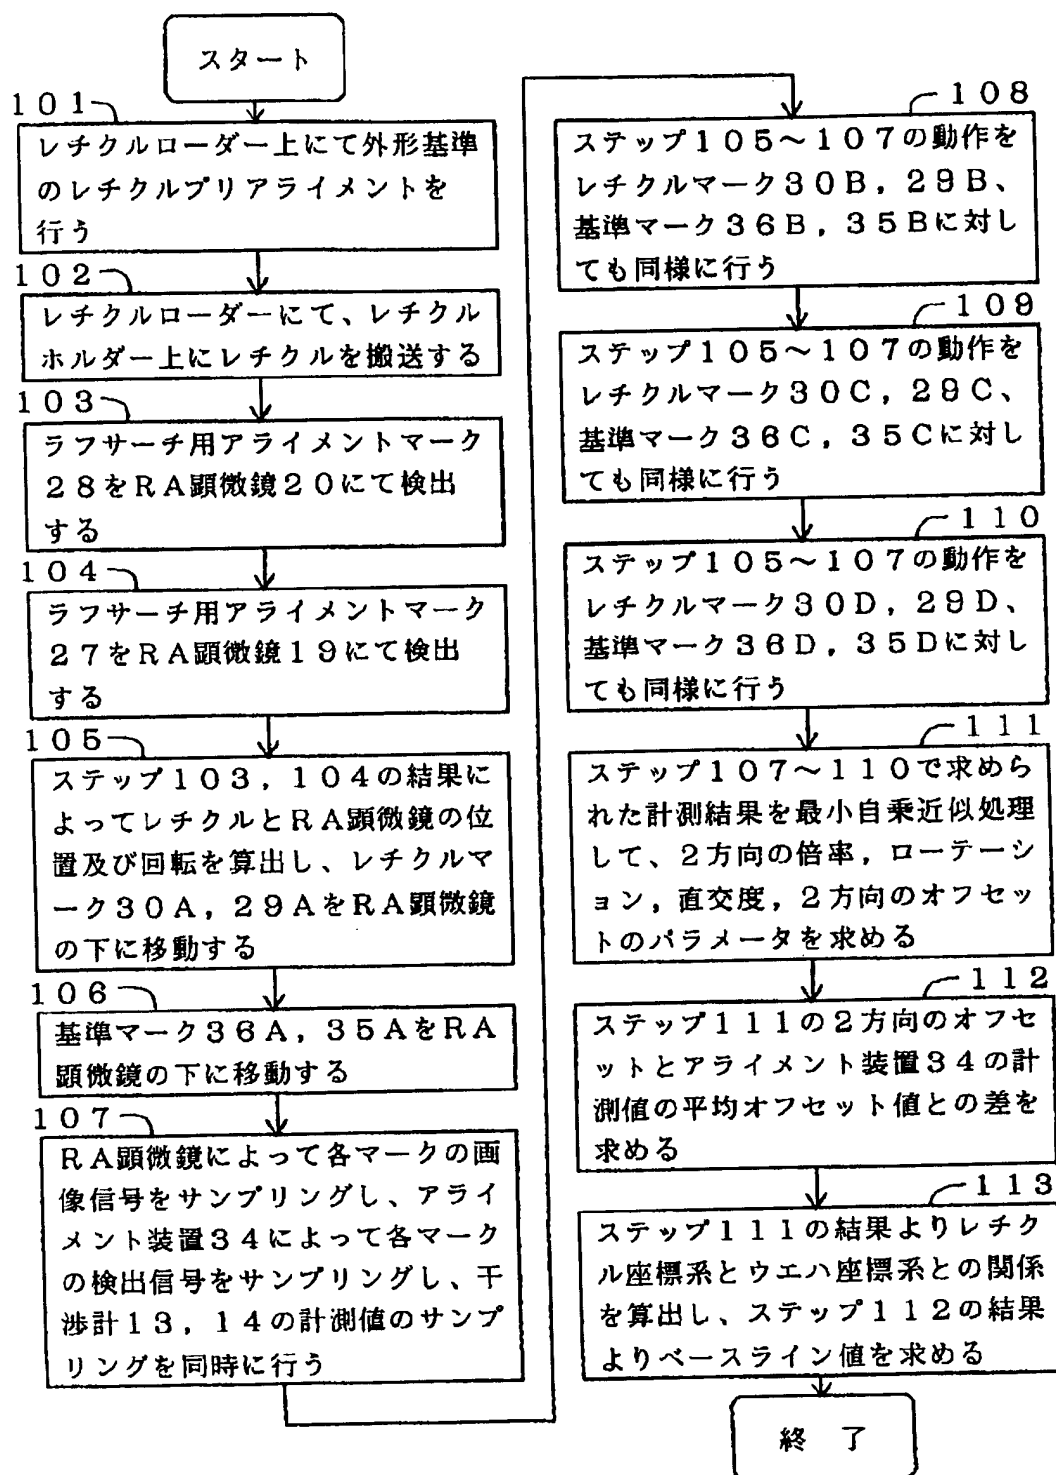 スタート
101
レチクルローダー上にて外形基準
のレチクルプリアライメントを
行う
102
レチクルローダーにて、レチクル
ホルダー上にレチクルを搬送する
103
ラフサーチ用アライメントマーク
28をRA顕微鏡20にて検出
する
104
ラフサーチ用アライメントマーク
27をRA顕微鏡19にて検出
する
105
ステップ103，104の結果に
よってレチクルとRA顕微鏡の位
置及び回転を算出し、レチクルマ
ーク30A，29AをRA顕微鏡
の下に移動する
106
基準マーク36A，35AをRA
顕微鏡の下に移動する
107
RA顕微鏡によって各マークの画
像信号をサンプリングし、アライ
メント装置34によって各マーク
の検出信号をサンプリングし、干
渉計13，14の計測値のサンプ
リングを同時に行う
108
ステップ105～107の動作を
レチクルマーク30B，29B、
基準マーク36B，35Bに対し
ても同様に行う
109
ステップ105～107の動作を
レチクルマーク30C，29C、
基準マーク36C，35Cに対し
ても同様に行う
110
ステップ105～107の動作を
レチクルマーク30D，29D、
基準マーク36D，35Dに対し
ても同様に行う
111
ステップ107～110で求めら
れた計測結果を最小自乗近似処理
して、2方向の倍率，ローテーシ
ョン，直交度，2方向のオフセッ
トのパラメータを求める
112
ステップ111の2方向のオフセ
ットとアライメント装置34の計
測値の平均オフセット値との差を
求める
113
ステップ111の結果よりレチク
ル座標系とウエハ座標系との関係
を算出し、ステップ112の結果
よりベースライン値を求める
終 了